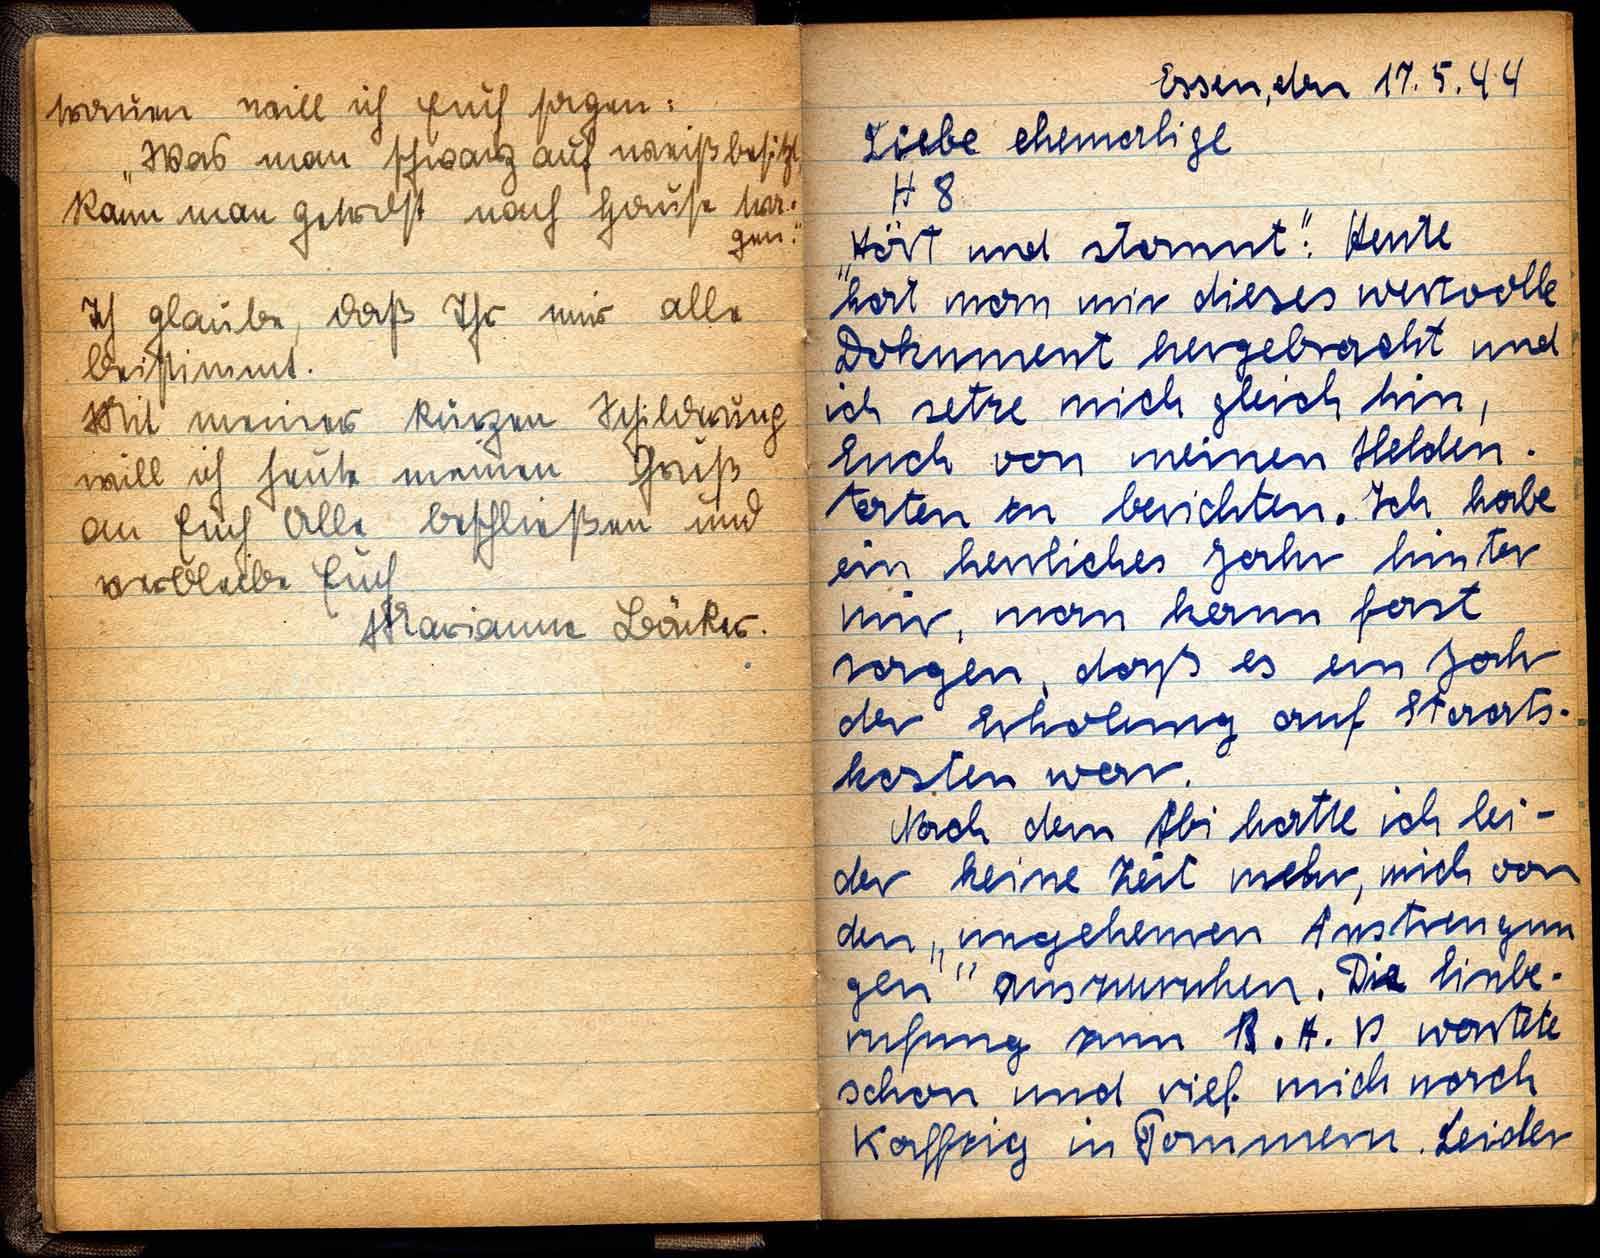 trauen will ich Euch sagen:
"Was man schwarz auf weiß besitzt,
kann man getrost nach Hause tra-
gen."
Ich glaube, daß Ihr mir alle
beistimmt.
Mit meiner kurzen Schilderung
will ich heute meinen Gruß
an Euch Alle beschließen und
verbleibe Euch
Marianne Bäcker.
Essen, den 17.5.44
Liebe ehemalige
H 8
"Hört und staunt": Heute
hat man mir dieses wertvolle
Dokument hergebracht und
ich setze mich gleich hin,
Euch von meinen Helden-
taten zu berichten. Ich habe
ein herrliches Jahr hinter
mir, man kann fast
sagen, daß es ein Jahr
der Erholung auf Staats-
kosten war.
Nach dem Abi hatte ich lei-
der keine Zeit mehr, mich von
den "ungeheuren Anstrengun
gen" auszuruhen. Die Einbe-
rufung zum R.A.D wartete
schon und rief mich nach
in Pommern. Leider